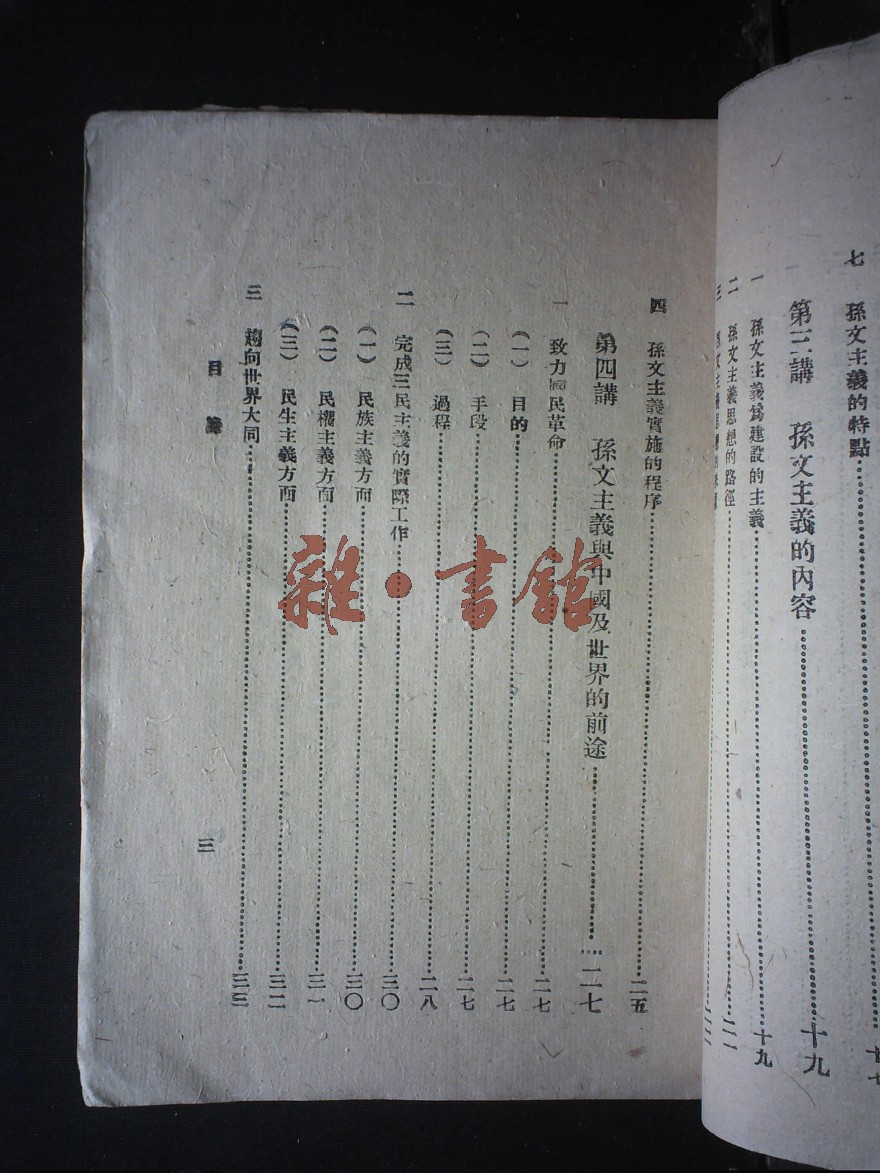 七　孫文主義的特點
第三講　孫文主義的內容　十九
一　孫文主義爲建設的主義　十九
二　孫文主義思想的路徑
三
四　孫文主義實施的程序　二五
第四講　孫文主義與中國及世界的前途　二七
一　致力國民革命　二七
（一）　目的　二七
（二）　手段　二七
（三）　過程　二八
二　完成三民主義的實際工作　三〇
（一）　民族主義方面　三〇
（二）　民權主義方面　三一
（三）　民生主義方面　三二
三　趨向世界大同　三三
目錄
三
雜·書館